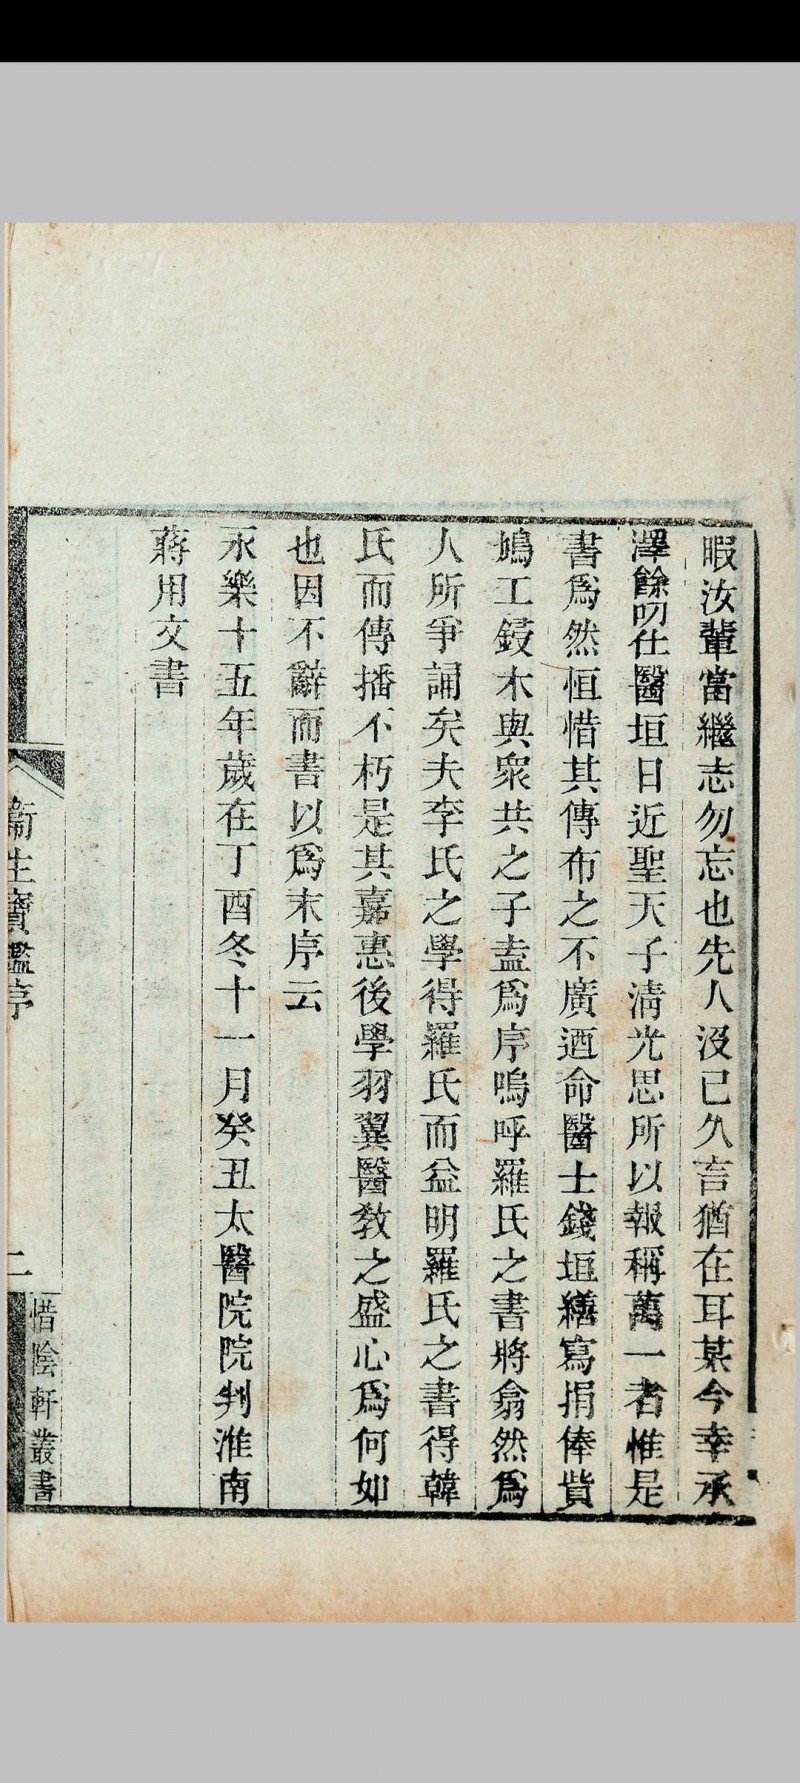 暇汝輩當繼志勿忘也先人沒已久言猶在耳某今幸承
澤餘叨仕醫垣日近聖天子淸光思所以報稱萬一者惟是
書爲然恒惜其傳布之不廣迺命醫士錢垣繕寫捐俸貲
鳩工鋟木與衆共之子盍爲序嗚呼羅氏之書將翕然爲
人所爭誦矣夫李氏之學得羅氏而益明羅氏之書得韓
氏而傳播不朽是其嘉惠後學羽翼醫敎之盛心爲何如
也因不辭而書以爲末序云
永樂十五年歲在丁酉冬十一月癸丑太醫院院判淮南
蔣用文書
衞生寶鑑序
二
惜陰軒叢書